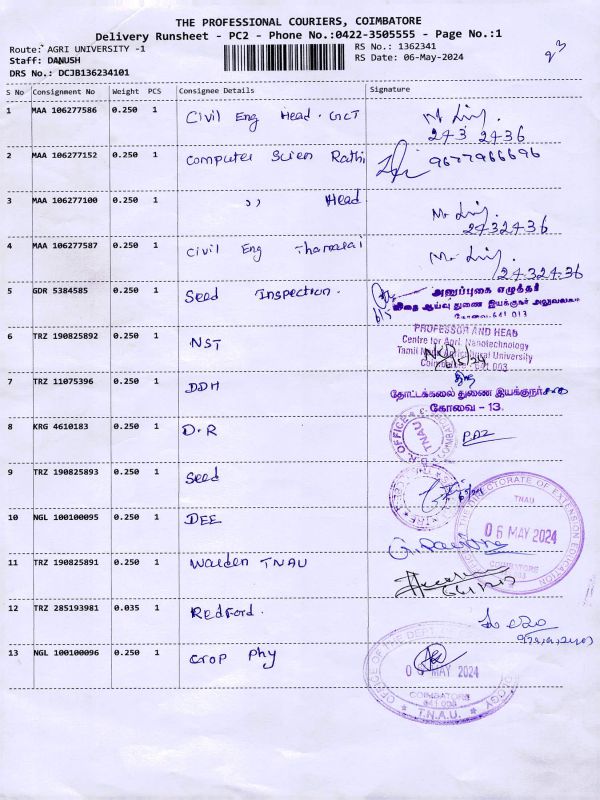 THE PROFESSIONAL COURIERS, COIMBATORE
Delivery Runsheet - PC2 - Phone No.:0422-3505555 - Page No.:1
Route: AGRI UNIVERSITY -1
RS No.: 1362341
Staff: DANUSH
RS Date: 06-May-2024
DRS No.: DCJB136234101
S No Consignment No Weight PCS Consignee Details Signature
1 MAA 106277586 0.250 1 Civil Eng Head. GCT
243 2436
2 MAA 106277152 0.250 1 Computer Scien Rathi 9677966696
3 MAA 106277100 0.250 1 ,, Head
2432436
4 MAA 106277587 0.250 1 Civil Eng
2432436
5 GDR 5384585 0.250 1 Seed Inspection. அனுப்புகை எழுத்தர்
விதை ஆய்வு துணை இயக்குநர் அலுவலகம்
கோவை-641 013
6 TRZ 190825892 0.250 1 NST
PROFESSOR AND HEAD
Centre for Agri. Nanotechnology
Tamil Nadu Agricultural University
Coimbatore - 641 003
7 TRZ 11075396 0.250 1 DDH
தோட்டக்கலை துணை இயக்குநர்
கோவை - 13.
8 KRG 4610183 0.250 1 D.R
OFFICE TNAU
9 TRZ 190825893 0.250 1 Seed
10 NGL 100100095 0.250 1 DEE
THE DIRECTORATE OF EXTENSION EDUCATION
TNAU
06 MAY 2024
COIMBATORE
11 TRZ 190825891 0.250 1 Warden TNAU
12 TRZ 285193981 0.035 1 Redford.
13 NGL 100100096 0.250 1 Crop Phy
OFFICE OF THE
06 MAY 2024
COIMBATORE
641 003
T.N.A.U.